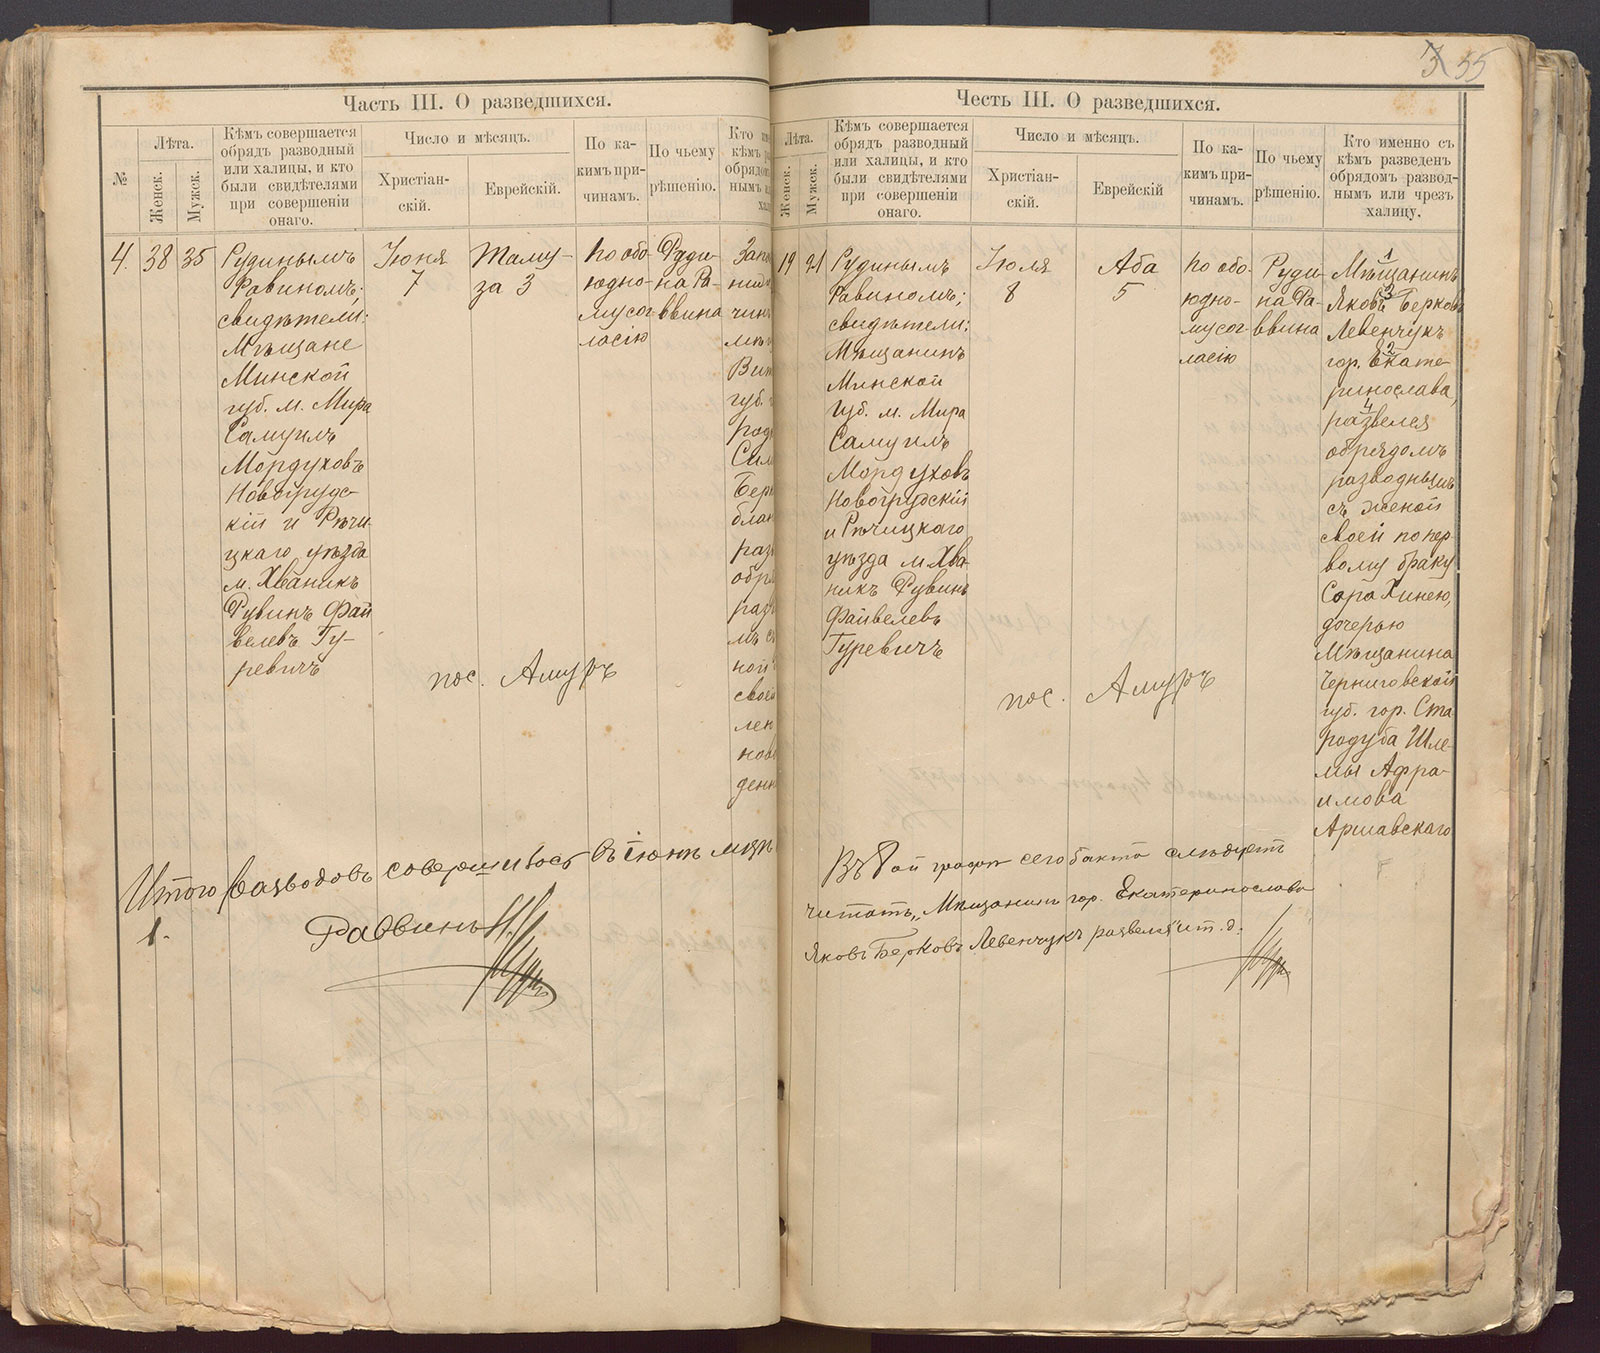 3 35
Часть III. О разведшихся.
№
Лѣта.
Женск.
Мужск.
Кѣмъ совершается
обрядъ разводный
или халицы, и кто
были свидѣтелями
при совершеніи
онаго.
Число и мѣсяцъ.
Христіан-
скій.
Еврейскій.
По ка-
кимъ при-
чинамъ.
По чьему
рѣшенію.
Кто
кѣмъ
обрядом
нымъ
4.
38
35
Рудинымъ
Равиномъ;
свидѣтели:
Мѣщане
Минской
губ. м. Мира
Самуилъ
Мордуховъ
Новогрудс-
кій и Рѣчи-
цкаго уѣзда
м. Хваникъ
Рувинъ Фай
велевъ Гу-
ревичъ
Іюня
7
Таму-
за 3
По обо
юдно-
му сог
ласію
Руди-
на Ра-
ввина
пос. Амуръ
Итого разводовъ совершилось въ іюнѣ мѣц
1.
Раввинъ
Честь III. О разведшихся.
Лѣта.
Женск.
Мужск.
Кѣмъ совершается
обрядъ разводный
или халицы, и кто
были свидѣтелями
при совершеніи
онаго.
Число и мѣсяцъ.
Христіан-
скій.
Еврейскій
По ка-
кимъ при-
чинамъ.
По чьему
рѣшенію.
Кто именно съ
кѣмъ разведенъ
обрядомъ развод-
нымъ или чрезъ
халицу.
19
21
Рудинымъ
Равиномъ;
свидѣтели:
Мѣщанинъ
Минской
губ. м. Мира
Самуилъ
Мордуховъ
Новогрудскій
и Рѣчицкаго
уѣзда м. Хва
никъ Рувинъ
Файвелевъ
Гуревичъ
Іюля
8
Аба
5
По обо-
юдно-
му сог
ласію
Руди-
на Ра-
ввина
1
Мѣщанинъ
3
Яковъ Берковъ
Левенчукъ
2
гор. Екате-
ринослава,
4
развелся
обрядомъ
разводнымъ
съ женой
своей по пер-
вому браку
Сора Хинею,
дочерью
Мѣщанина
Черниговской
губ. гор. Ста
родуба Шле-
мы Афра-
имова
Аршавскаго
пос. Амуръ
Въ 8ой графѣ сего бакта слѣдуетъ
читать „Мѣщанинъ гор. Екатеринослава
Яковъ Берковъ Левенчукъ развелся" и т. д.